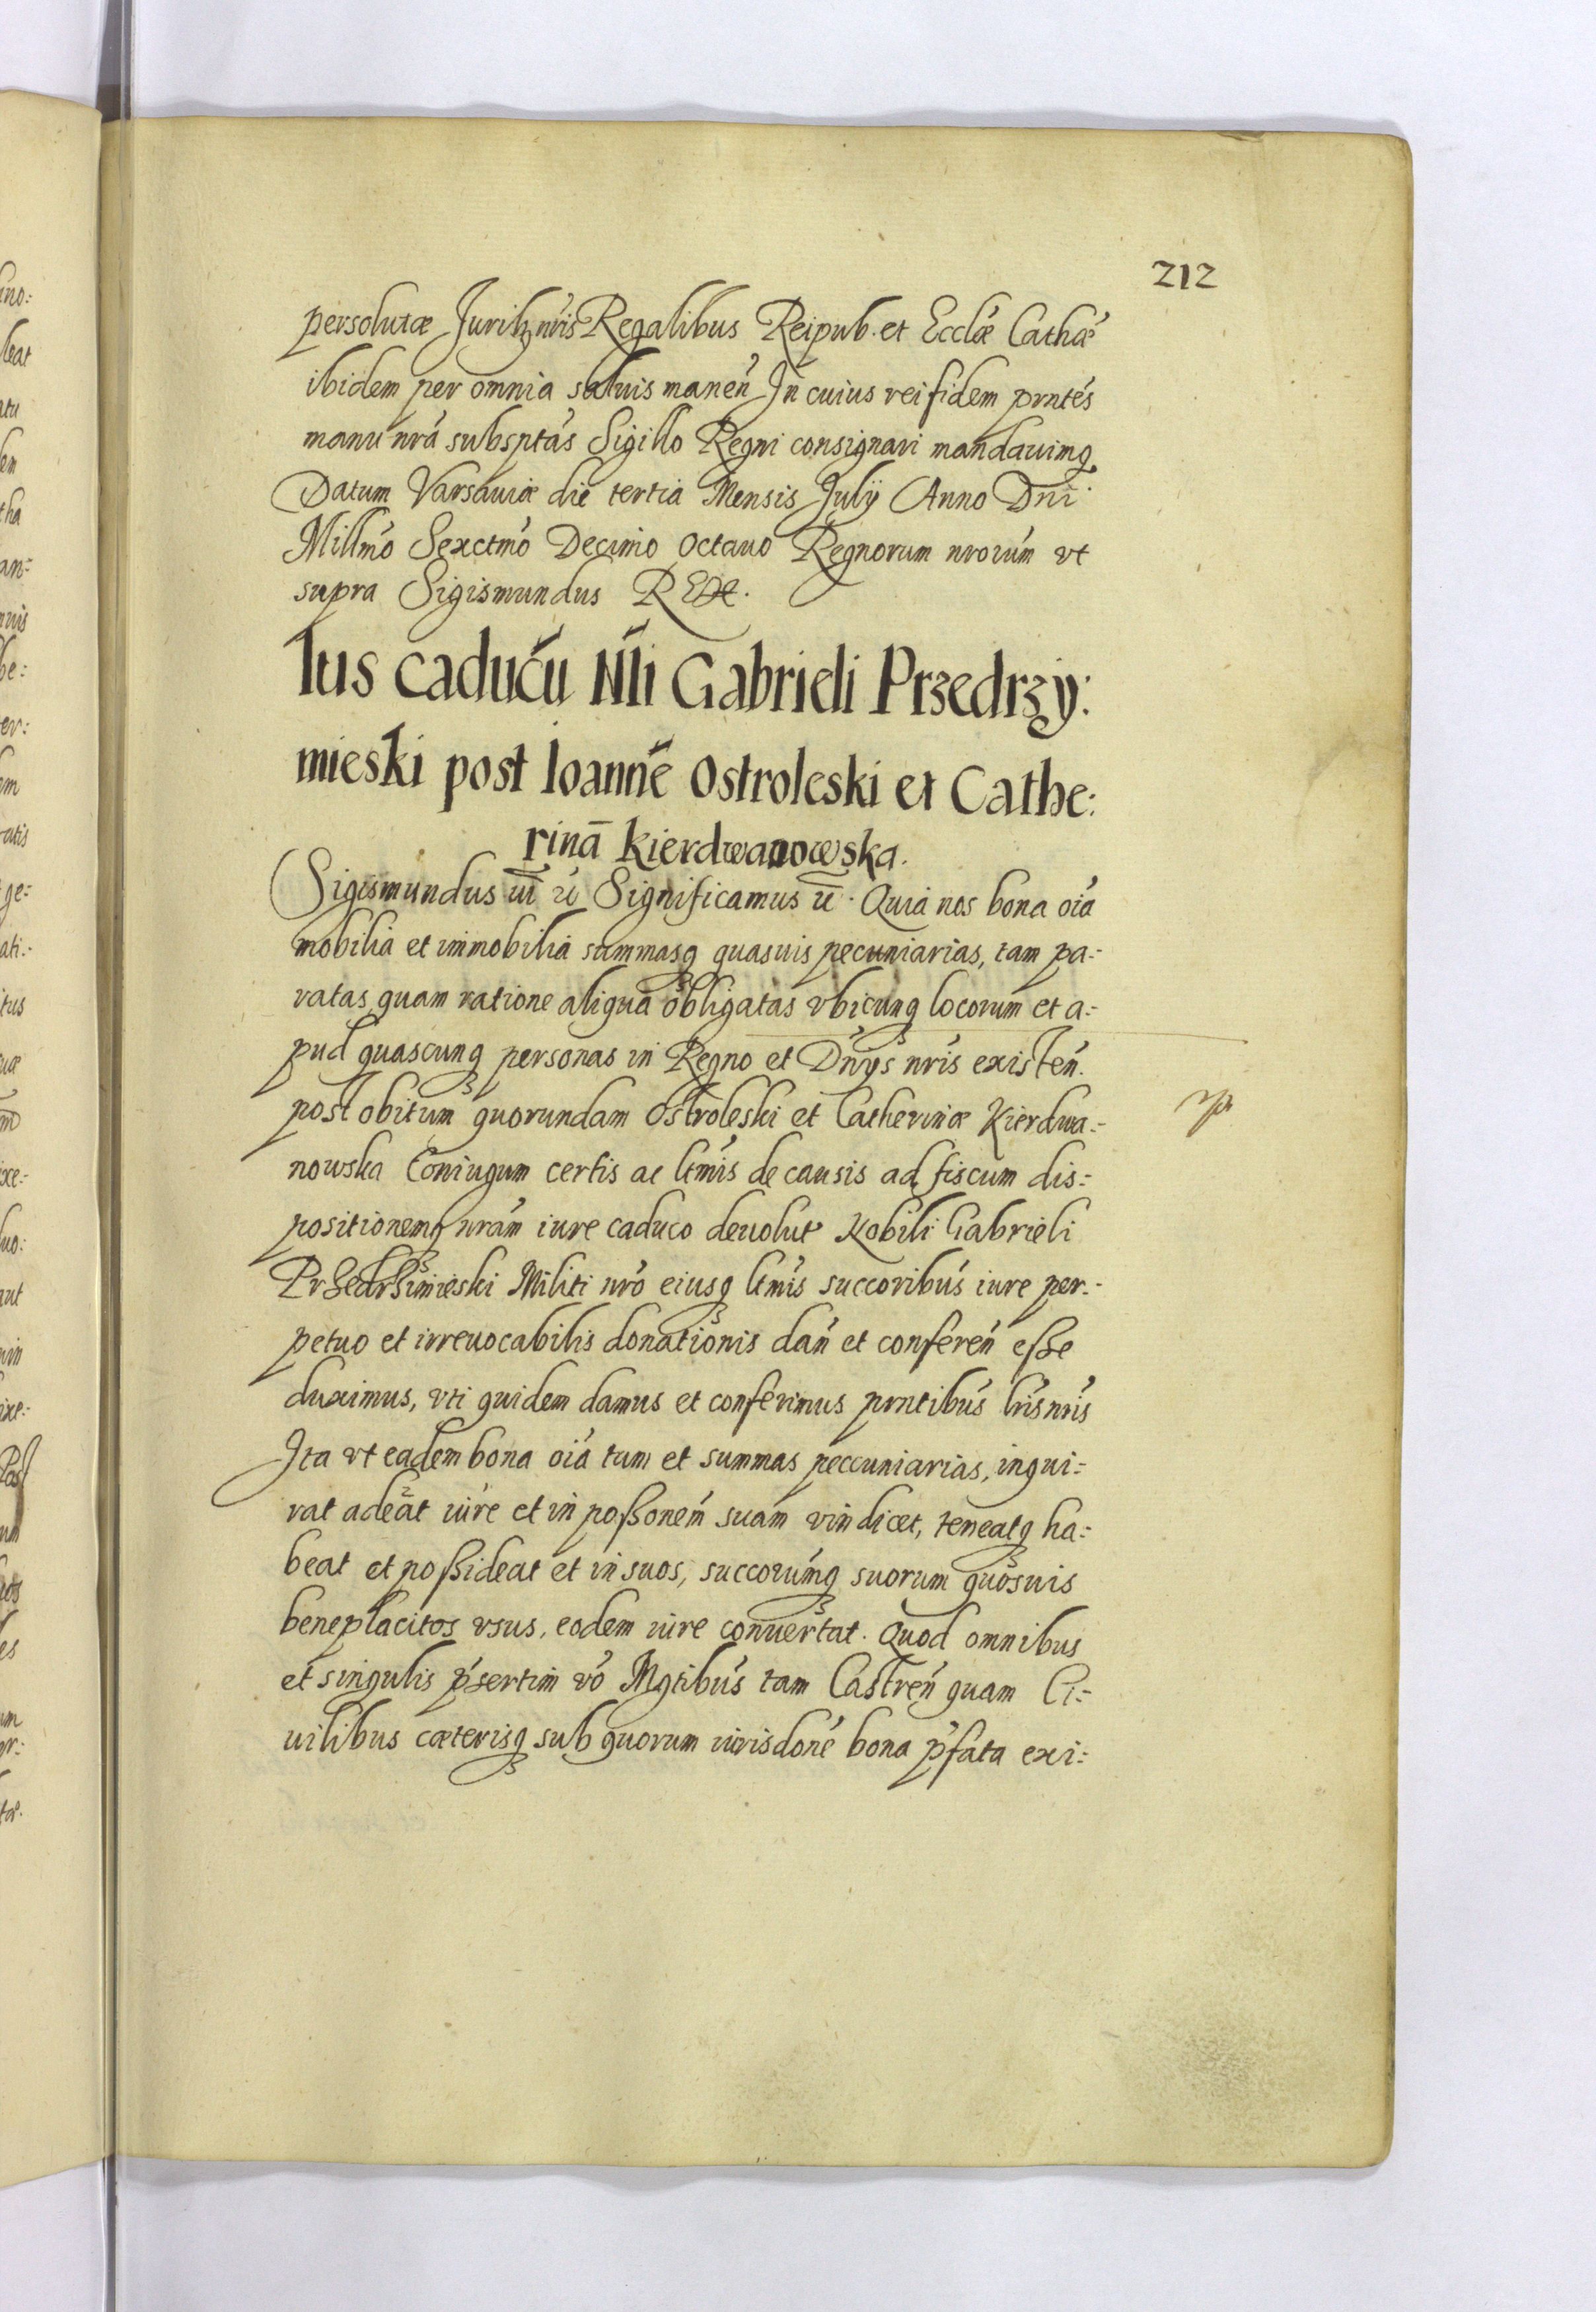 212
persolutæ Jurib₃ nris Regalibus Reipub. et Ecclæ Cathæ
ibidem per omnia saluis manen̄ In cuius rei fidem prntes
manu nrá subsptás Sigillo Regni consignari mandauimq
Datum Varsauiæ die tertia Mensis Julÿ Anno Dni
Millmó Sexctmó Decimo Octauo Regnorum nrorúm vt
supra Sigismundus REX.
Ius caducū Nli Gabrieli Przedrzy:
mieski post Ioannē Ostroleski et Cathe:
rinā Kierdwanowska.
Sigismundus III Significamus Quia nos bona oiá
mobilia et immobilia summasq quasuis pecuniarias, tam pa:-
ratas quam ratione aliqua obligatas vbicunq locorum et a:-
pud quascunq personas in Regno et Dnÿs nris existen̄.
post obitum quorundam Ostroleski et Catherinæ Kierdwa:-
nowska Coniugum certis ac ltmis de causis ad fiscum dis:-
positionemq nrám iure caduco deuolut Nobili Gabrieli
Przedrzimieski Militi nró eiusq ltmis succoribus iure per:-
petuo et irreuocabilis donationis dan̄ et conferen̄ eße
duximus, vti quidem damus et conferimus prntibus lris nris
Ita vt eadem bona oiá tum et summas peccuniarias, inqui:-
rat adeat iure et in poßonem suam vindicet, teneatq ha:-
beat et poßideat et in suos, succorumq suorum quosuis
beneplacitos vsus, eodem iure conuertat. Quod omnibus
et singulis psertim vó Mgtibus tam Castren̄ quam Ci:-
uilibus cæterisq sub quorum iurisdone bona pfata exi:-